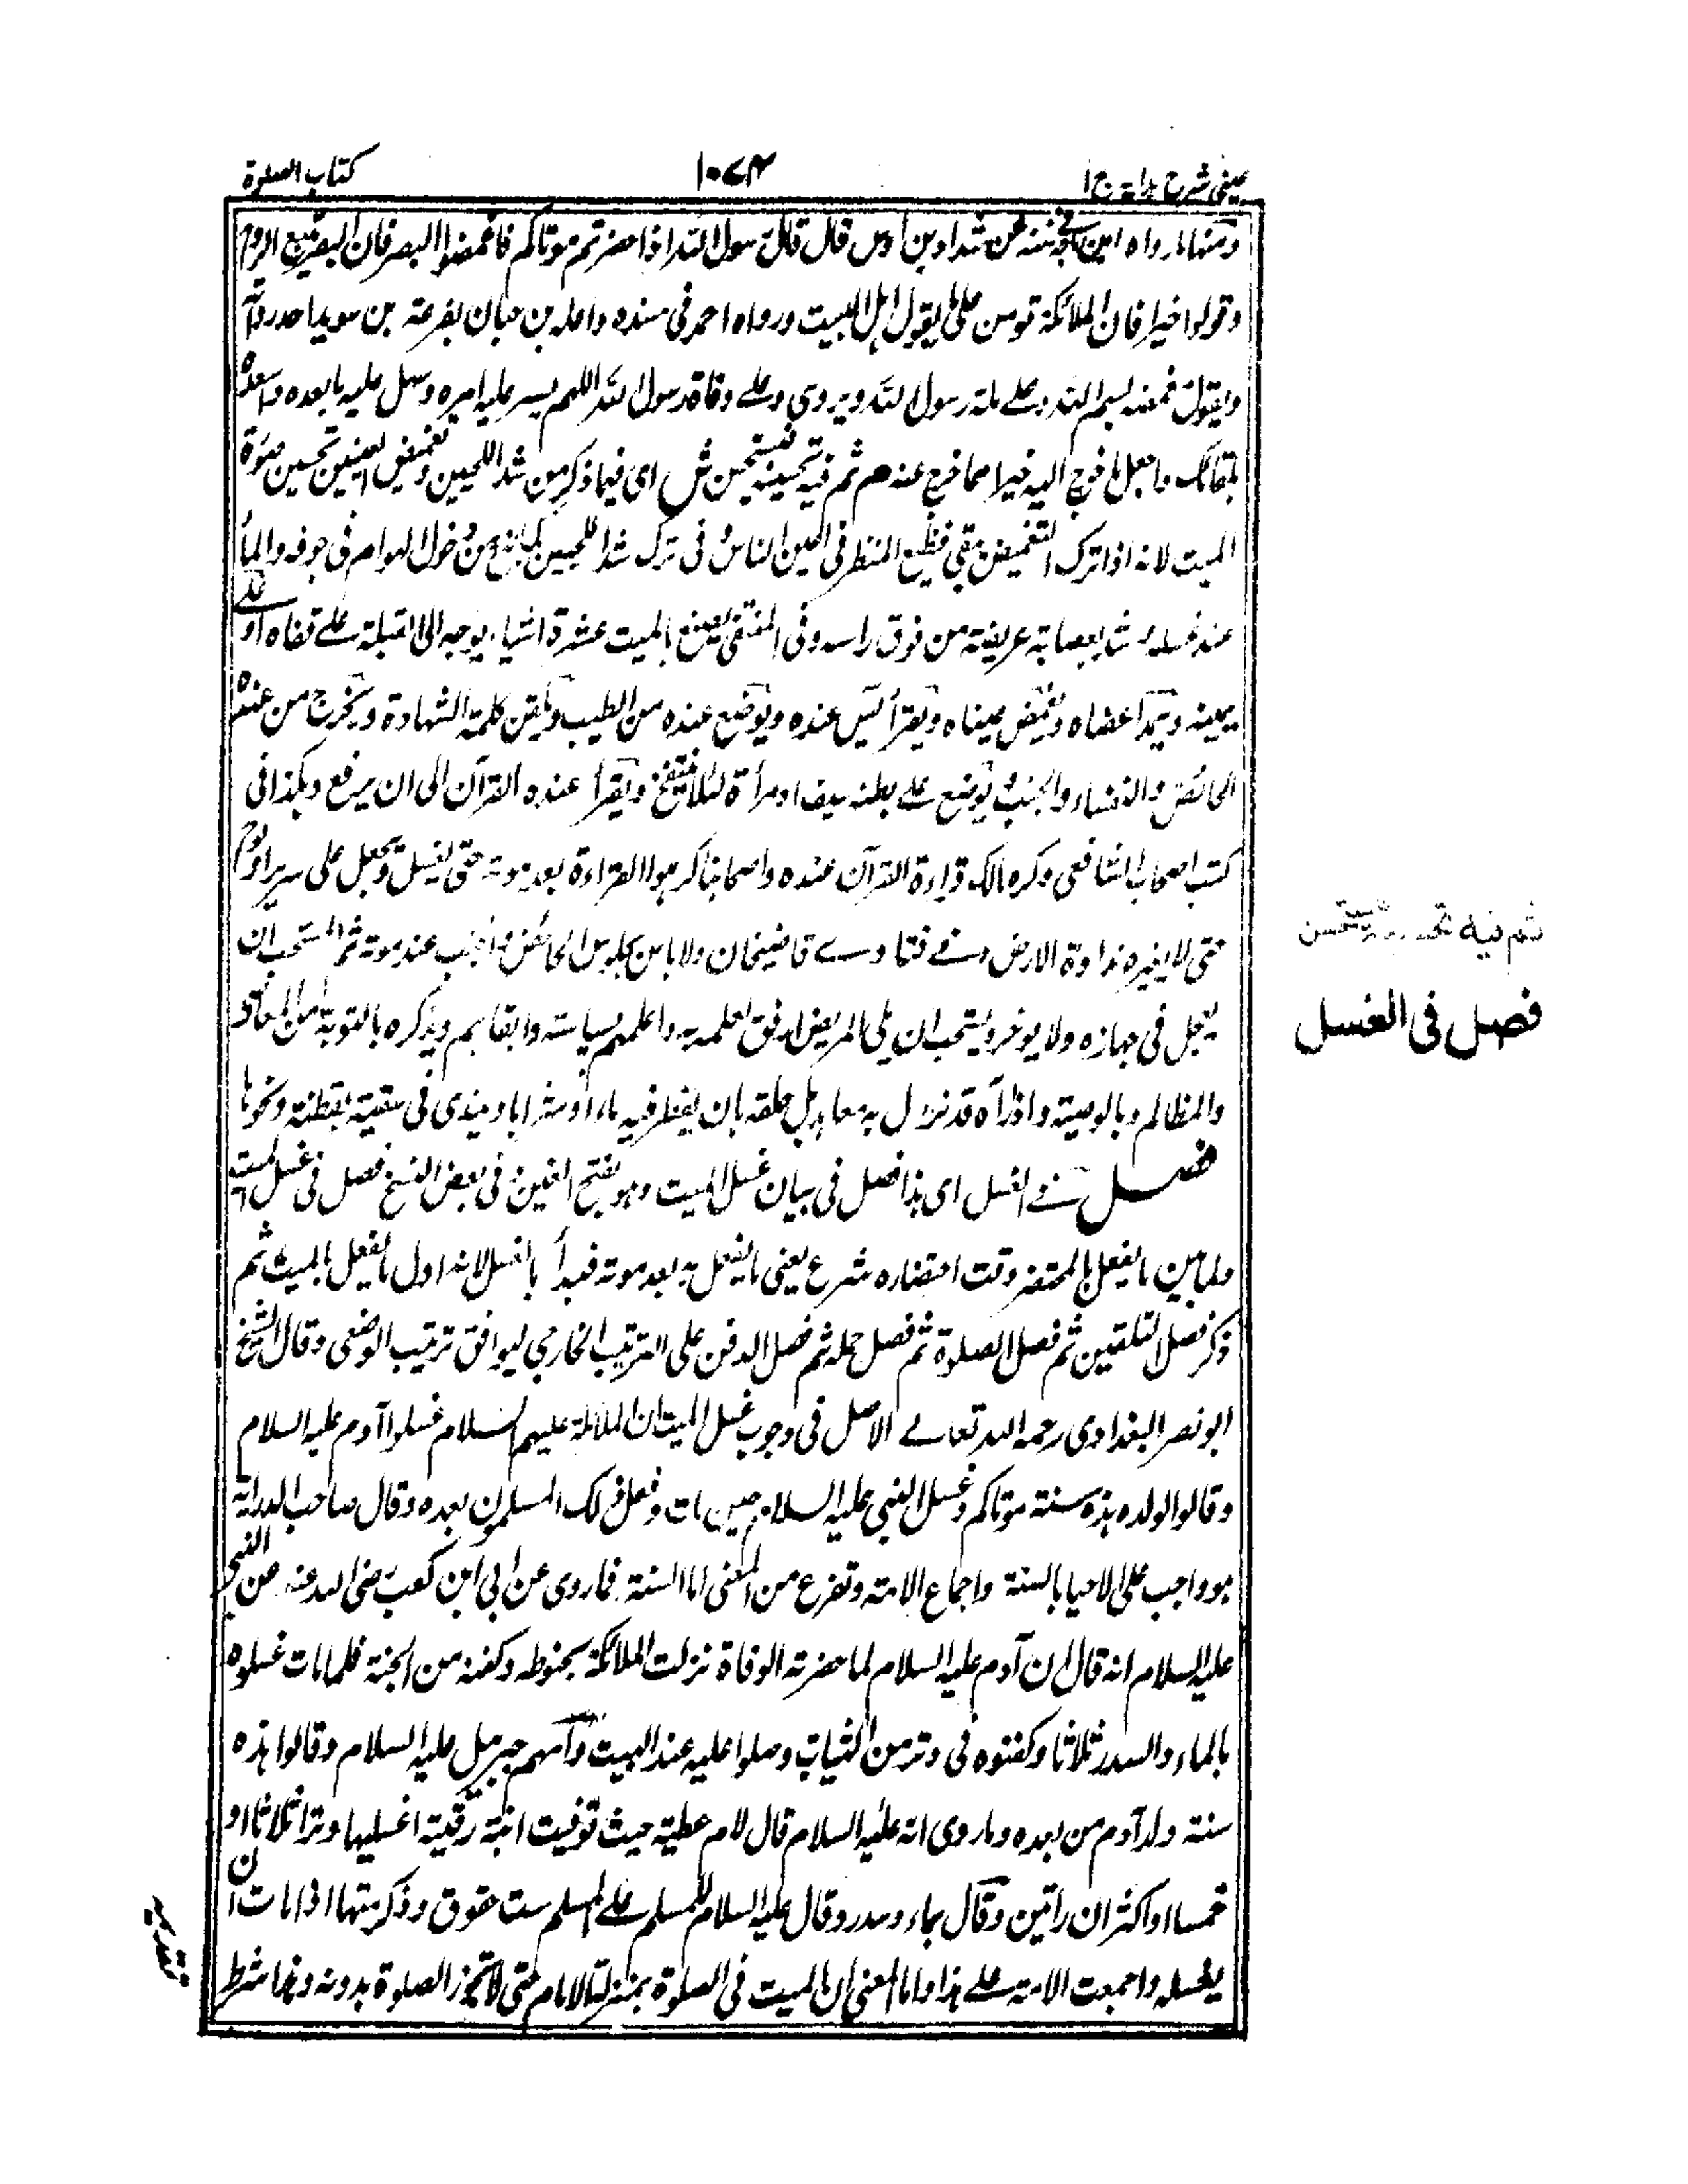 عینی شرح ہدایہ ج ١
١٠٧٤
کتاب الصلوة
ومنها ما رواه ابن ماجة في سننه عن شداد بن أوس قال قال رسول الله اذا حضرتم موتاكم فاغمضوا البصر فان البصر يتبع الروح
وقولوا خيرا فان الملائكة تؤمن على ما يقول اهل البيت ورواه احمد في مسنده واعله بن حبان بقزعة بن سويد احد رواته
ويقول مغمضه بسم الله وعلى ملة رسول الله ويروى وعلى وفاة رسول الله اللهم يسر عليه امره وسهل عليه ما بعده واسعده
بلقائك واجعل ما خرج اليه خيرا مما خرج عنه م ثم فيه تحسينه فيستحسن ش اى فيما ذكر من شد اللحيين وتغميض العينين تحسين صورة
الميت لانه اذا ترك التغميض يبقى فظيع المنظر في اعين الناس وفي ترك شد اللحيين لا يمنع من دخول الهوام في جوفه والماء
عند غسله بعصابة عريضة من فوق راسه وفى يصنع بالميت عشرة اشياء يوجه الى القبلة على قفاه او على
يمينه ويمد اعضاه ويغمض عيناه ويقرأ يس عنده ويوضع عنده من الطيب ويلقن كلمة الشهادة ويخرج من عنده
الحائض والنفساء والجنب ويوضع على بطنه سيف او مرأة لئلا ينتفخ ويقرأ عنده القرآن الى ان يرفع وهكذا فى
كتب اصحاب الشافعى وكره مالك قراءة القرآن عنده واصحابنا كرهوا القراءة بعد موته حتى يغسل ويجعل على سرير او لوح
حتى لا يغيره نداوة الارض وفى فتاوى قاضيخان ولا باس بجلوس الحائض والجنب عند موته ثم المستحب ان
يعجل فى جهازه ولا يوخر ويستحب ان يلى المريض ارفق اهله به واعلمهم بسياسته واتقاهم ويذكره بالتوبة من المعاصى
والمظالم وبالوصية واذا رآه قد نزل به تعاهد بل حلقه بان يقطر فيه ماء او شرابا ويندى فى شفتيه بقطنة ونحوها
فصل فى الغسل اى هذا فصل فى بيان غسل الميت وهو بفتح الغين وفى بعض النسخ فصل فى غسل الميت
ولما بين ما يفعل بالمحتضر وقت احتضاره شرع يعنى ما يفعل به بعد موته فبدأ بالغسل لانه اول ما يفعل بالميت ثم
ذكر فصل التلقين ثم فصل الصلوة ثم فصل حمله ثم فصل الدفن على الترتيب الخارجى ليوافق ترتيب الوضعى وقال الشيخ
ابو نصر البغدادى رحمه الله تعالى الاصل فى وجوب غسل الميت ان الملائكة عليهم السلام غسلوا آدم عليه السلام
وقالوا لولده هذه سنة موتاكم وغسل النبى عليه السلام حين مات وفعل ذلك المسلمون بعده وقال صاحب الدراية
هو واجب على الاحيا بالسنة واجماع الامة وتفرع من المعنى اما السنة فما روى عن ابى ابن كعب رضى الله عنه عن النبى
عليه السلام انه قال ان آدم عليه السلام لما حضرته الوفاة نزلت الملائكة بحنوطه وكفنه من الجنة فلما مات غسلوه
بالماء والسدر ثلاثا وكفنوه فى وتر من الثياب وصلوا عليه عند البيت وامهم جبرئيل عليه السلام وقالوا هذه
سنة ولد آدم من بعده وما روى انه عليه السلام قال لام عطية حيث توفيت ابنته رقية اغسليها وترا ثلاثا او
خمسا او اكثر ان رأيتن وقال بماء وسدر وقال عليه السلام للمسلم على المسلم ست حقوق وذكر منها اذا مات ان
يغسله واجمعت الامة على هذا واما المعنى ان الميت فى الصلوة بمنزلة الامام حتى لا تجوز الصلوة بدونه وانما شرط
ثم فيه تحسينه فيستحسن
فصل فى الغسل